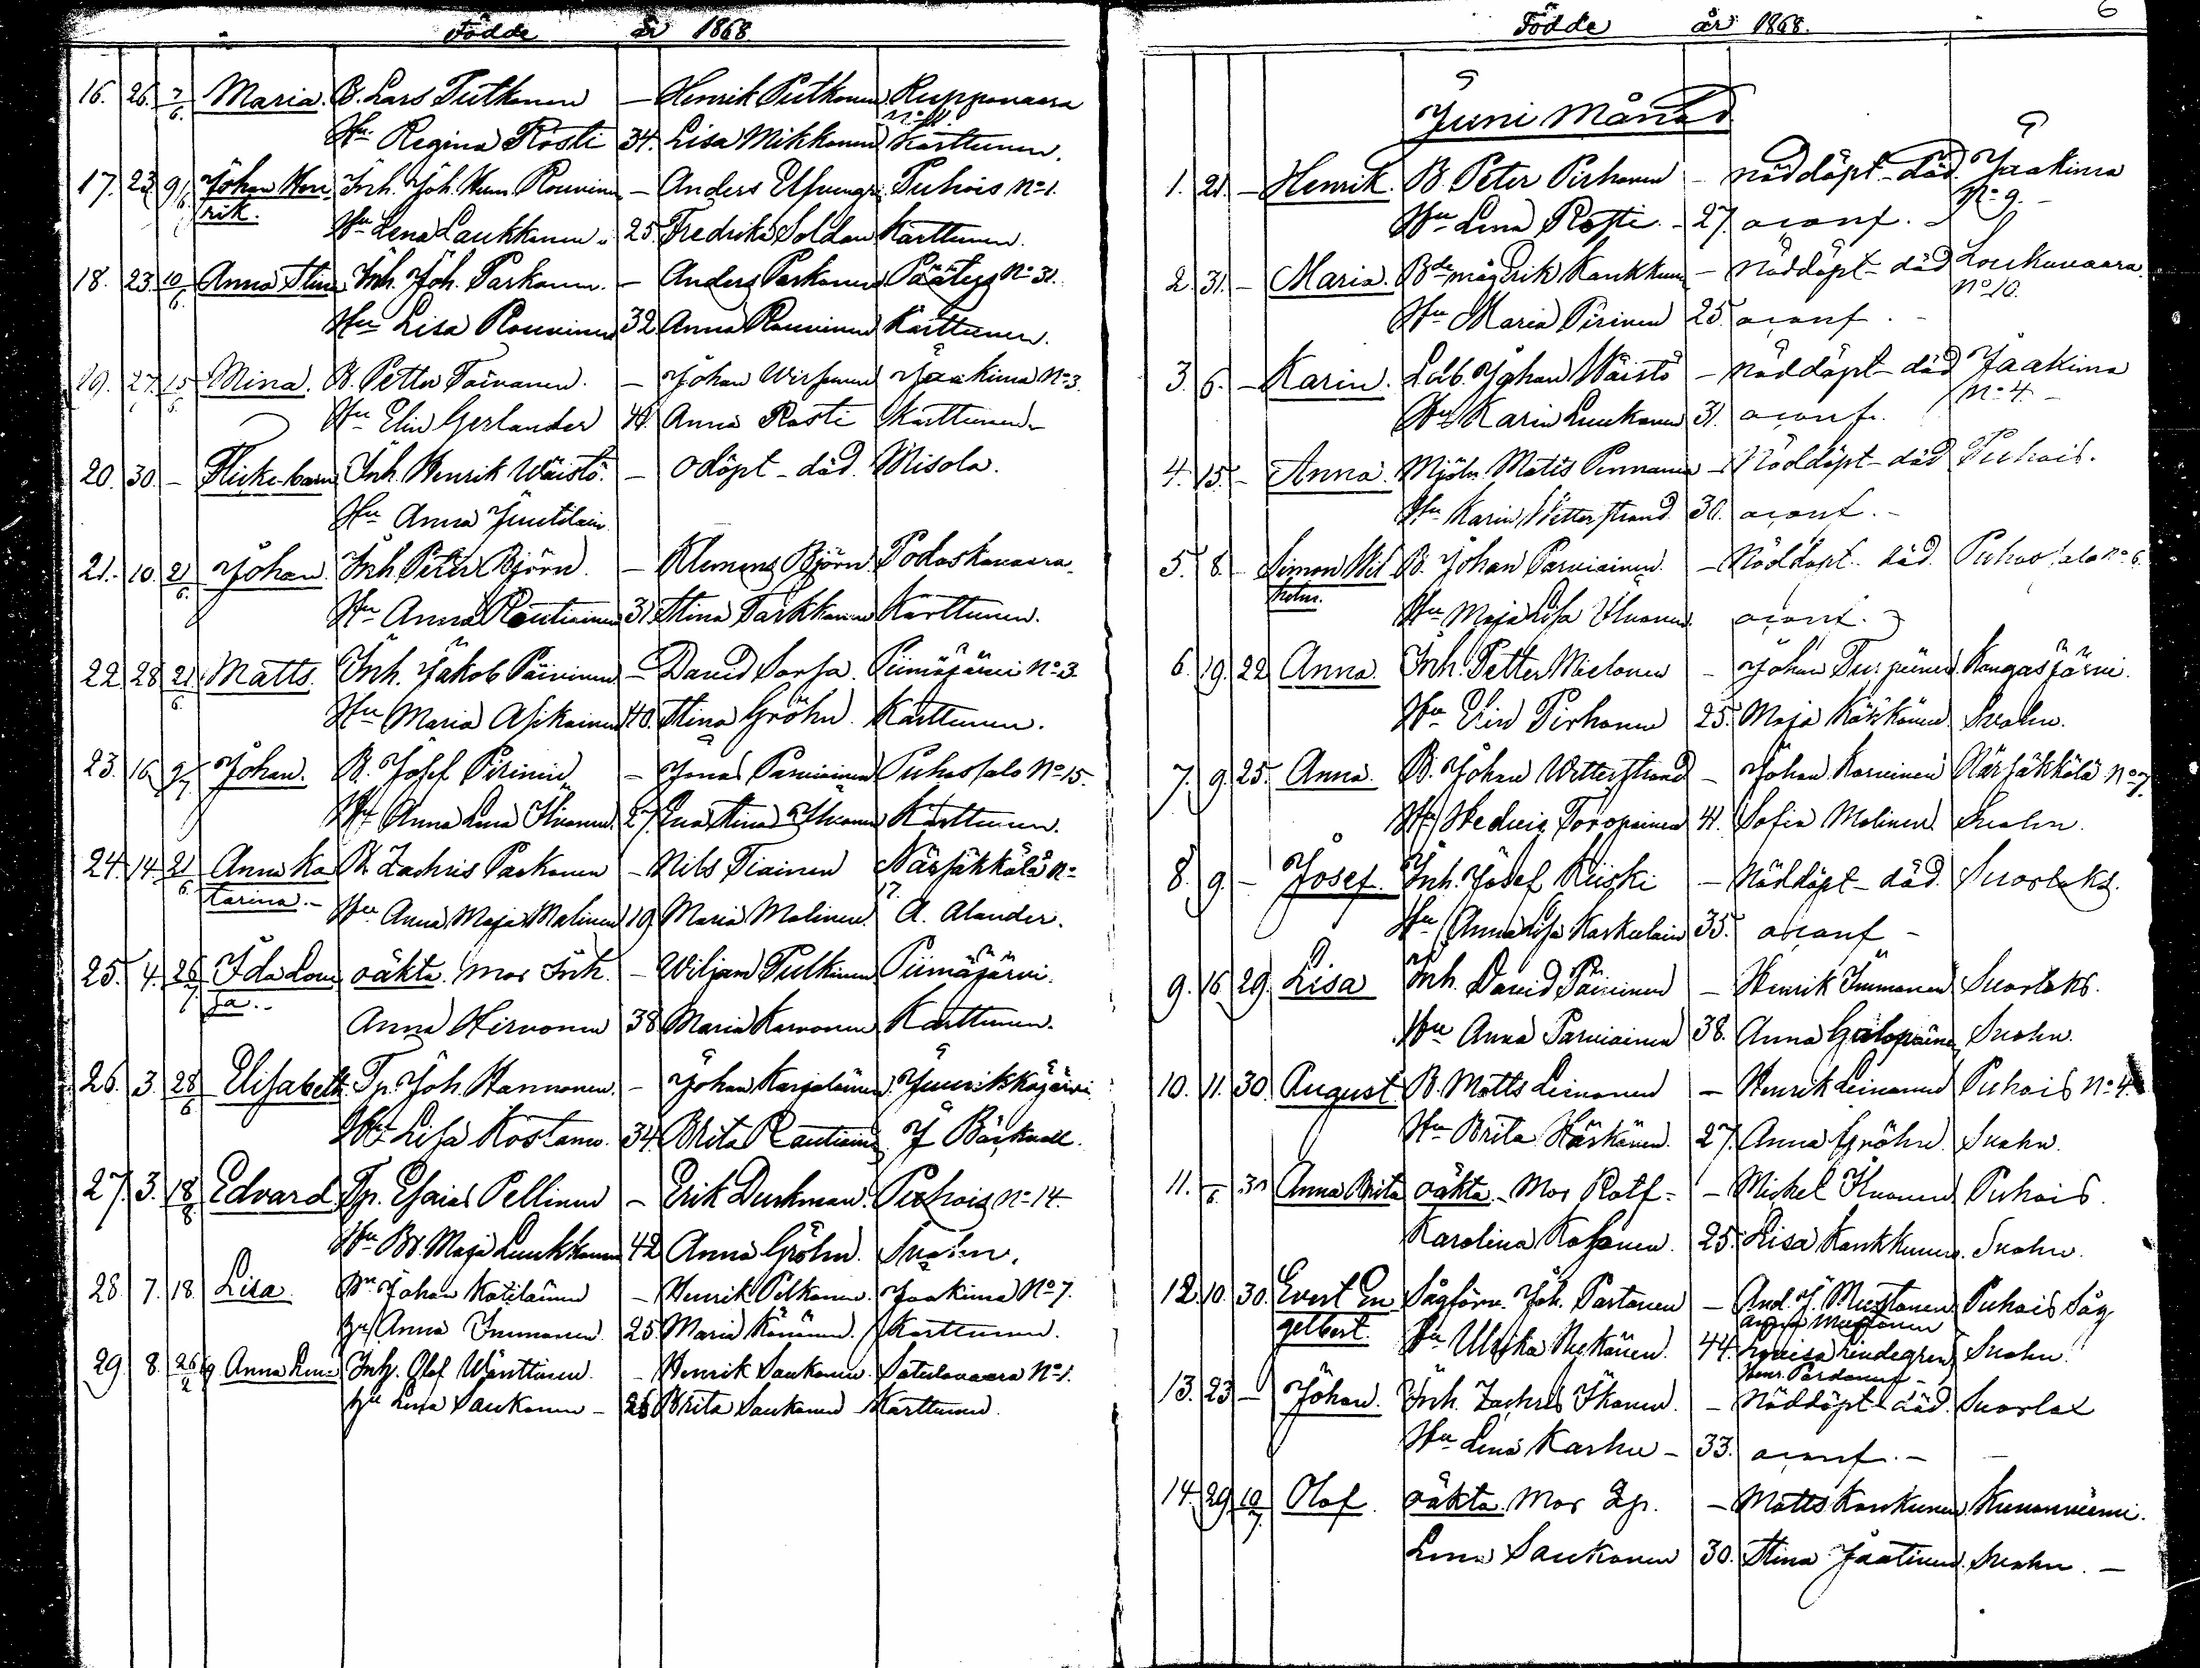 Födde år 1868.
16. 26. 7/6. Maria. B. Lars Putkonen — Henrik Putkonen Ruppovaara
No 11.
Hu Regina Rosti 34. Lisa Mikkonen Karttunen.
17. 23. 9/6. Johan Hen Inh. Joh. Henr. Rouvinen — Anders Puhois No 1.
rik. Hu Lena Laukkanen 25. Fredrika Soldan Karttunen.
18. 23. 10/6. Anna Stina Inh. Joh. Parkonen. — Anders Parkonen Päätys No 31.
Hu Lisa Rouvinen 32 Anna Rouvinen Karttunen.
19. 27. 15/6. Mina. B. Petter Toivanen. — Johan Jaakima No 3.
Hu Elin Gerlander 41. Anna Rosti Karttunen
20. 30. — Flicke-barn Inh. Henrik Wäistö. — Odöpt - död. Misola.
Hu Anna Juutilain
21. 10. 21/6. Johan Inh Peter Björn. — Klemens Björn Podoskavaara.
Hu Anna Rautiainen 31. Stina Tarkkanen Karttunen.
22 28 21/6. Matts. Inh. Jakob Päivinen — David Sorsa. Piimäjärvi No 3.
Hu Maria Asikainen 40. Stina Gröhn. Karttunen.
23. 16 9/7. Johan. B. Josef Pirinen — Jonas Parviainen Puhossalo No 15.
Hu Anna Lena Ikonen. 27. Eva Stina Karttunen.
24. 14. 21/6. Anna Ka B. Zachris Paakonen — Nils Tiainen Närsäkkälä No
tarina. — Hu Anna Maja Malinen 19. Maria Malinen 17. A. Alander.
25. 4. 26/7. Ida Lovi oäkta. Mor Inh. — Wiljam Pulkinen Piimäjärvi.
sa. Anna Hirvonen 38 Maria Karvonen Karttunen.
26. 3. 28/6. Elisabeth Tp. Joh Hannonen. — Johan Karjalainen Juurikkajärvi
Hu Lisa Kostamo. 34. Brita Rautiainen J Bäckvall.
27. 3. 18/8. Edvard Tp. Esaias Pellinen — Erik Durkman. Puhois No 14.
Hu Br. Maja Luukkanen 42 Anna Gröhn. Suohn.
28. 7. 18. Lisa. Br. Johan Kotilainen — Henrik Pelkonen. Jaakima No 7.
hu Anna Immonen. 25 Maria Könönen. Karttunen.
29. 8. 26/2 Anna Lena Inh. Olof Wänttinen. — Henrik Saukonen. Satulavaara No 1.
hu Lena Saukonen — 26 Brita Saukonen Karttunen.
Födde år 1868. 6
Juni Månad
1. 21. — Henrik. B. Peter Pirhonen — nöddöpt död. Jaakima
No 9.
Hu Lena Rosti. — 27. aconf.
2. 31. — Maria. Bde måg Erik Kaukkunen — Nöddöpt - död Loukuvaara
No 10.
Hu Maria Pirinen 25. aconf.
3. 6. — Karin. Ldb. Johan Wäistö — Nöddöpt - död Jaakima
No 4 —
Hu Karin Luukonen 31. aconf.
4. 15. — Anna. Mjöln. Matts Pennanen — Nöddöpt - död Puhois.
Hu Karin Wetterstrand. 30. aconf. —
5. 8. — Simon Wil B. Johan Parviainen. — Nöddöpt. död. Puhossalo No 6.
helm. Hu Maja Lisa Ikonen. aconf.
6. 19. 22 Anna. Inh. Petter Mielonen — Johan Turpeinen Kangasjärvi.
Hu Elin Pirhonen 25. Maja Käkkönen Suohn.
7. 9. 25. Anna. B. Johan Witterstrand — Johan Karvinen Närsäkkälä No 7.
Hu Hedvig Toropainen 41. Sofia Malinen. Suohn.
8. 9. — Josef. Inh. Josef Kiiski — Nöddöpt - död. Suorlaks.
Hu Anna Lisa Karkulain 35. aconf —
9. 16 29. Lisa Inh. David Päivinen — Henrik Immonen Suorlaks.
Hu Anna Parviainen 38. Anna Suohn.
10. 11. 30. August B. Matts Leinonen — Henrik Leinonen Puhois No 4.
Hu Brita Härkönen. 27. Anna Gröhn. Suohn.
11. 6. 30 Anna Brita oäkta. Mor Rotf. — Michel Ikonen Puhois.
Karolina Kosonen. 25. Lisa Kaukkunen. Suohn.
12. 10. 30. Evert En Sågförv. Joh. Partanen — And. J. Mustonen Puhois Såg
Anna Mustonen
gelbert. Hu Ulrika Neskänen. 44. Lovisa Lindegren Suohn.
13. 23 — Johan. Inh. Zachris Ikonen. — Nöddöpt - död. Suorlax
Hu Lena Karhu — 33. aconf. —
14. 29. 19/7. Olof. oäkta. Mor Tp. — Matts Kaukunen Kunonniemi.
Lena Saukonen 30. Stina Jaatinen. Suohn. —